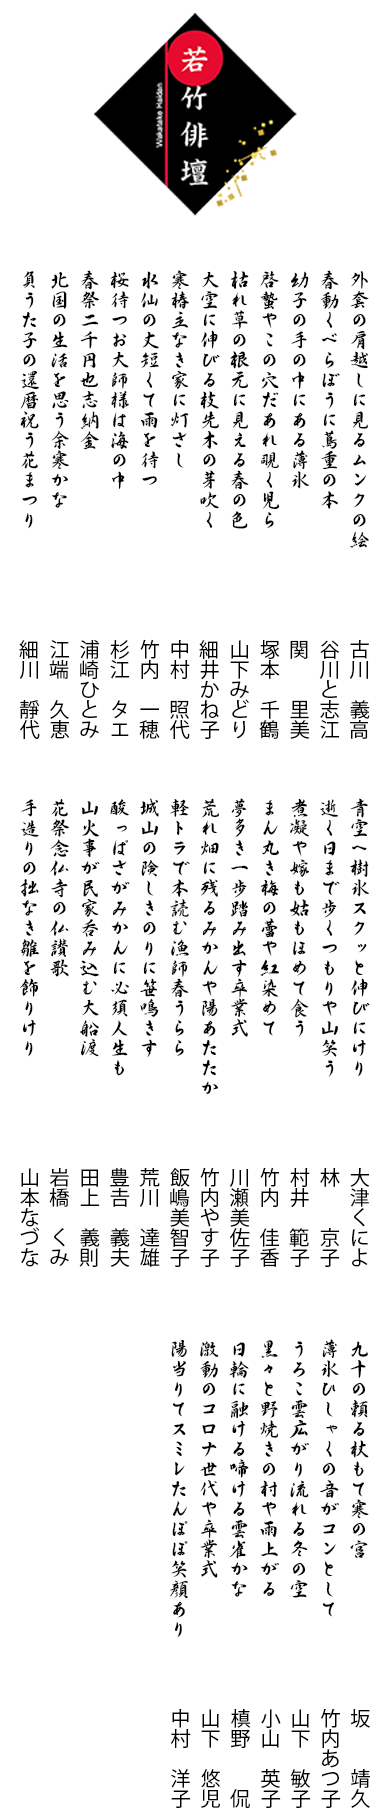 若竹俳壇
Wakatake Haidan
外套の肩越しに見るムンクの絵　古川　義高
春動くべらぼうに蔦重の本　谷川と志江
幼子の手の中にある薄氷　関　里美
啓蟄やこの穴だあれ覗く児ら　塚本　千鶴
枯れ草の根元に見える春の色　山下みどり
大空に伸びる枝先木の芽吹く　細井かね子
寒椿主なき家に灯さし　中村　照代
水仙の丈短くて雨を待つ　竹内　一穂
桜待つお大師様は海の中　杉江　タエ
春祭二千円也志納金　浦崎ひとみ
北国の生活を思う余寒かな　江端　久恵
負うた子の還暦祝う花まつり　細川　靜代
青空へ樹氷スクッと伸びにけり　大津くによ
逝く日まで歩くつもりや山笑う　林　京子
煮凝や嫁も姑もほめて食う　村井　範子
まん丸き梅の蕾や紅染めて　竹内　佳香
夢多き一歩踏み出す卒業式　川瀬美佐子
荒れ畑に残るみかんや陽あたたか　竹内やす子
軽トラで本読む漁師春うらら　飯嶋美智子
城山の険しきのりに笹鳴きす　荒川　達雄
酸っぱさがみかんに必須人生も　豊𠮷　義夫
山火事が民家呑み込む大船渡　田上　義則
花祭念仏寺の仏讃歌　岩橋　くみ
手造りの拙なき雛を飾りけり　山本なづな
九十の頼る杖もて寒の宮　坂　靖久
薄氷ひしゃくの音がコンとして　竹内あつ子
うろこ雲広がり流れる冬の空　山下　敏子
黒々と野焼きの村や雨上がる　小山　英子
日輪に融ける啼ける雲雀かな　槙野　侃
激動のコロナ世代や卒業式　山下　悠児
陽当りてスミレたんぽぽ笑顔あり　中村　洋子